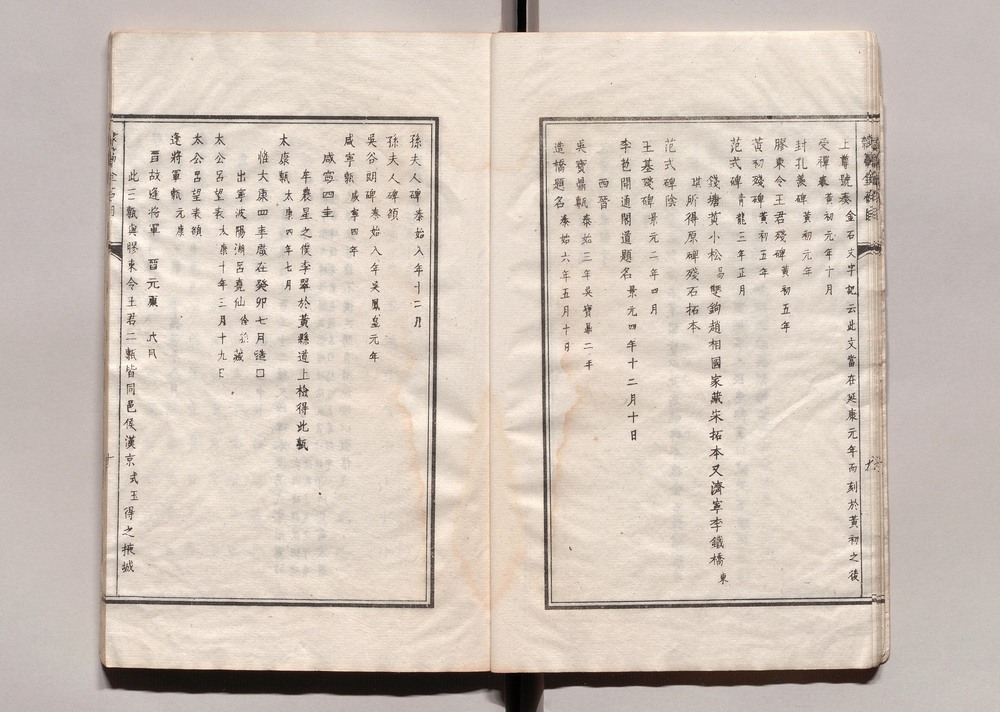 上尊號奏金石文字記云此文當在延康元年而刻於黃初之後
受禪表黃初元年十月
封孔羨碑黃初元年
膠東令王君殘碑黃初五年
黃初殘碑黃初五年
范式碑青龍三年正月
錢塘黃小松易雙鉤趙相國家藏宋拓本又濟寧李鐵橋東
琪所得原碑殘石拓本
范式碑陰
王基殘碑景元二年四月
李苞開通閣道題名景元四年十二月十日
西晉
吳寶鼎甎泰始三年吳寶鼎二年
造橋題名泰始六年五月十日
孫夫人碑泰始八年十二月
孫夫人碑額
吳谷朗碑泰始八年吳鳳皇元年
咸寧甎咸寧四年
咸寧四圭
牟農星之僕李翠於黃縣道上檢得此甎
太康甎太康四年七月
惟大康四年歲在癸卯七月造口
出寧波陽湖呂堯仙佺孫藏
太公呂望表太康十年三月十九日
太公呂望表額
逢將軍甎元康
晉故逢將軍 晉元康 六月
此三甎與膠東令王君二甎皆同邑侯漢京式玉得之掖城